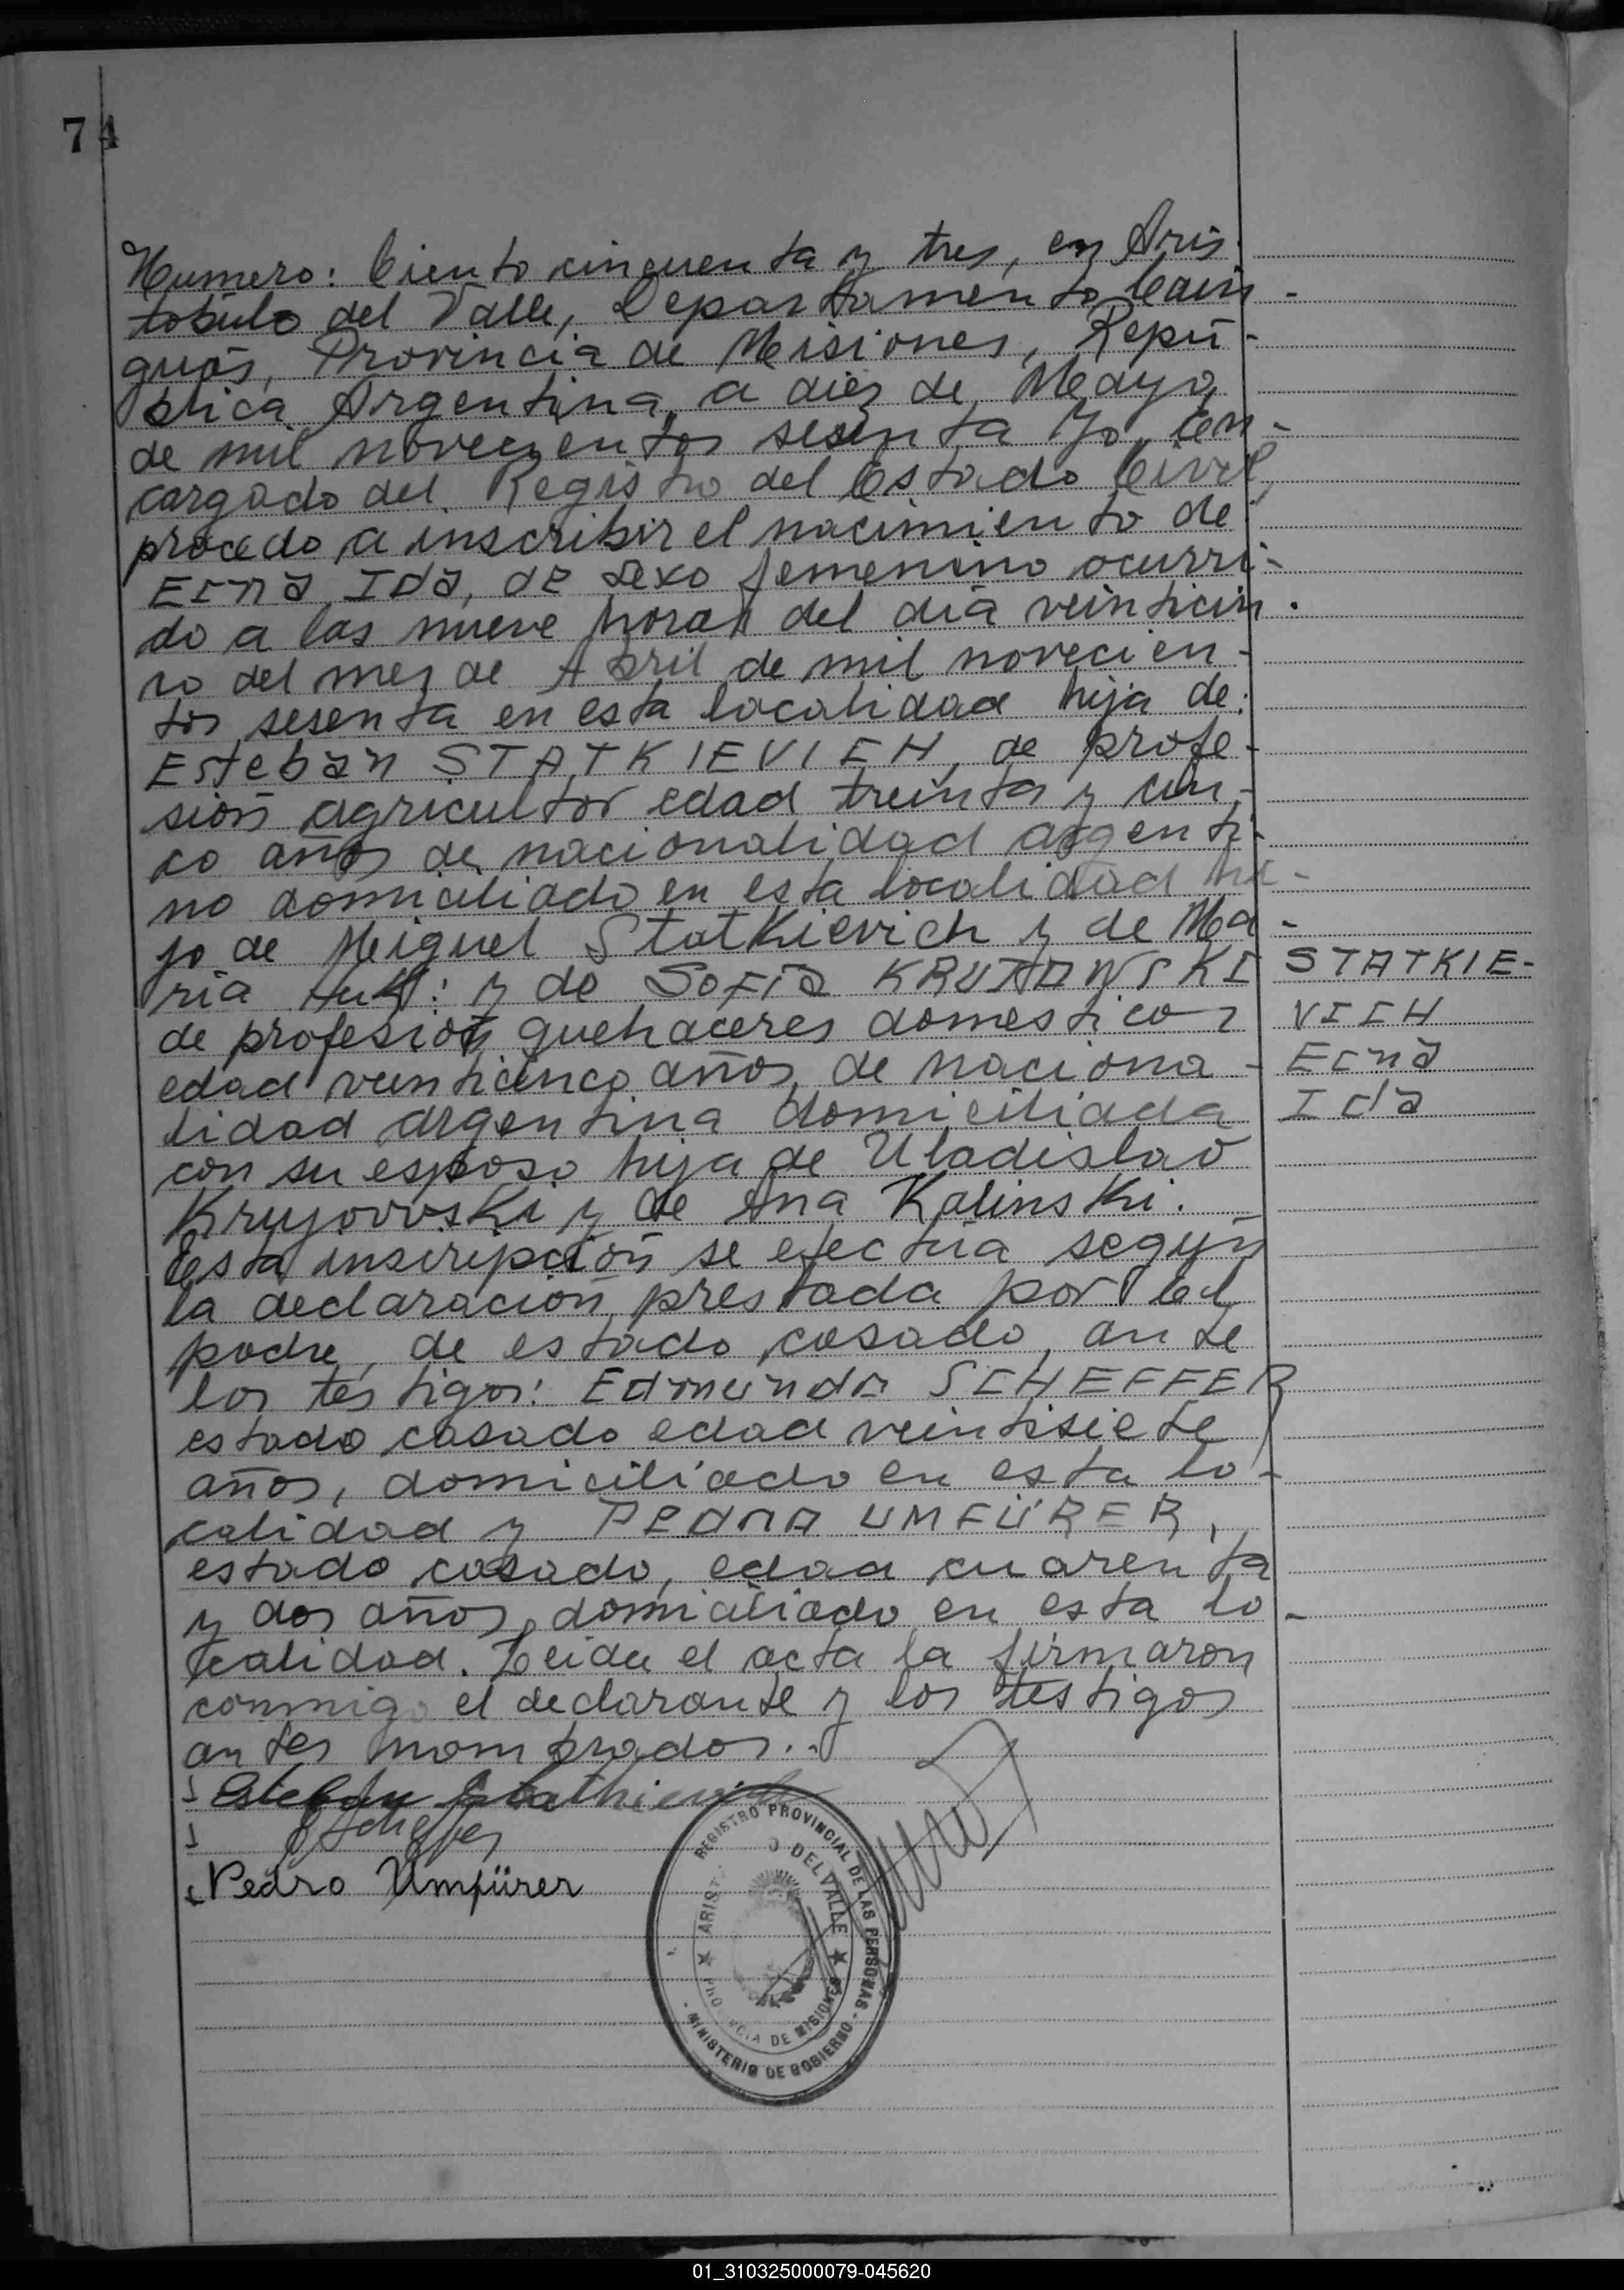 74
Numero: Ciento cincuenta y tres, en Aris
tobulo del Valle, Departamento Cain-
guás, Provincia de Misiones, Repú-
blica Argentina, a diez de Mayo
de mil novecientos sesenta Yo, en-
cargado del Registro del Estado Civil,
procedo a inscribir el nacimiento de
Erna Ida, de sexo femenino ocurri-
do a las nueve horas del día veinticin-
co del mes de Abril de mil novecien-
tos sesenta en esta localidad hija de:
Esteban STATKIEVICH, de profe-
sión agricultor edad treinta y cin-
co años de nacionalidad argenti-
no domiciliado en esta localidad hi-
jo de Miguel Statkievich y de Ma-
ria : y de Sofia
de profesión quehaceres domesticos
edad veinticinco años, de naciona-
lidad argentina domiciliada
con su esposo hija de Uladislao
Kryjovvski y de Ana Kalinski.
Esta inscripción se efectúa según
la declaración prestada por el
padre, de estado casado, ante
los testigos: Edmundo SCHEFFER
estado casado edad veintisiete
años, domiciliado en esta lo-
calidad y PEDRO UMFÜRER,
estado casado, edad cuarenta
y dos años, domiciliado en esta lo-
calidad. Leida el acta la firmaron
conmigo el declarante y los testigos
antes nombrados..
STATKIE-
VICH
Erna
Ida
Esteban Statkievich
E Scheffer
Pedro Umfürer
REGISTRO PROVINCIAL DE LAS PERSONAS
- MINISTERIO DE GOBIERNO -
ARIST O DEL VALLE
PRO NCIA DE MISIONES
01_310325000079-045620